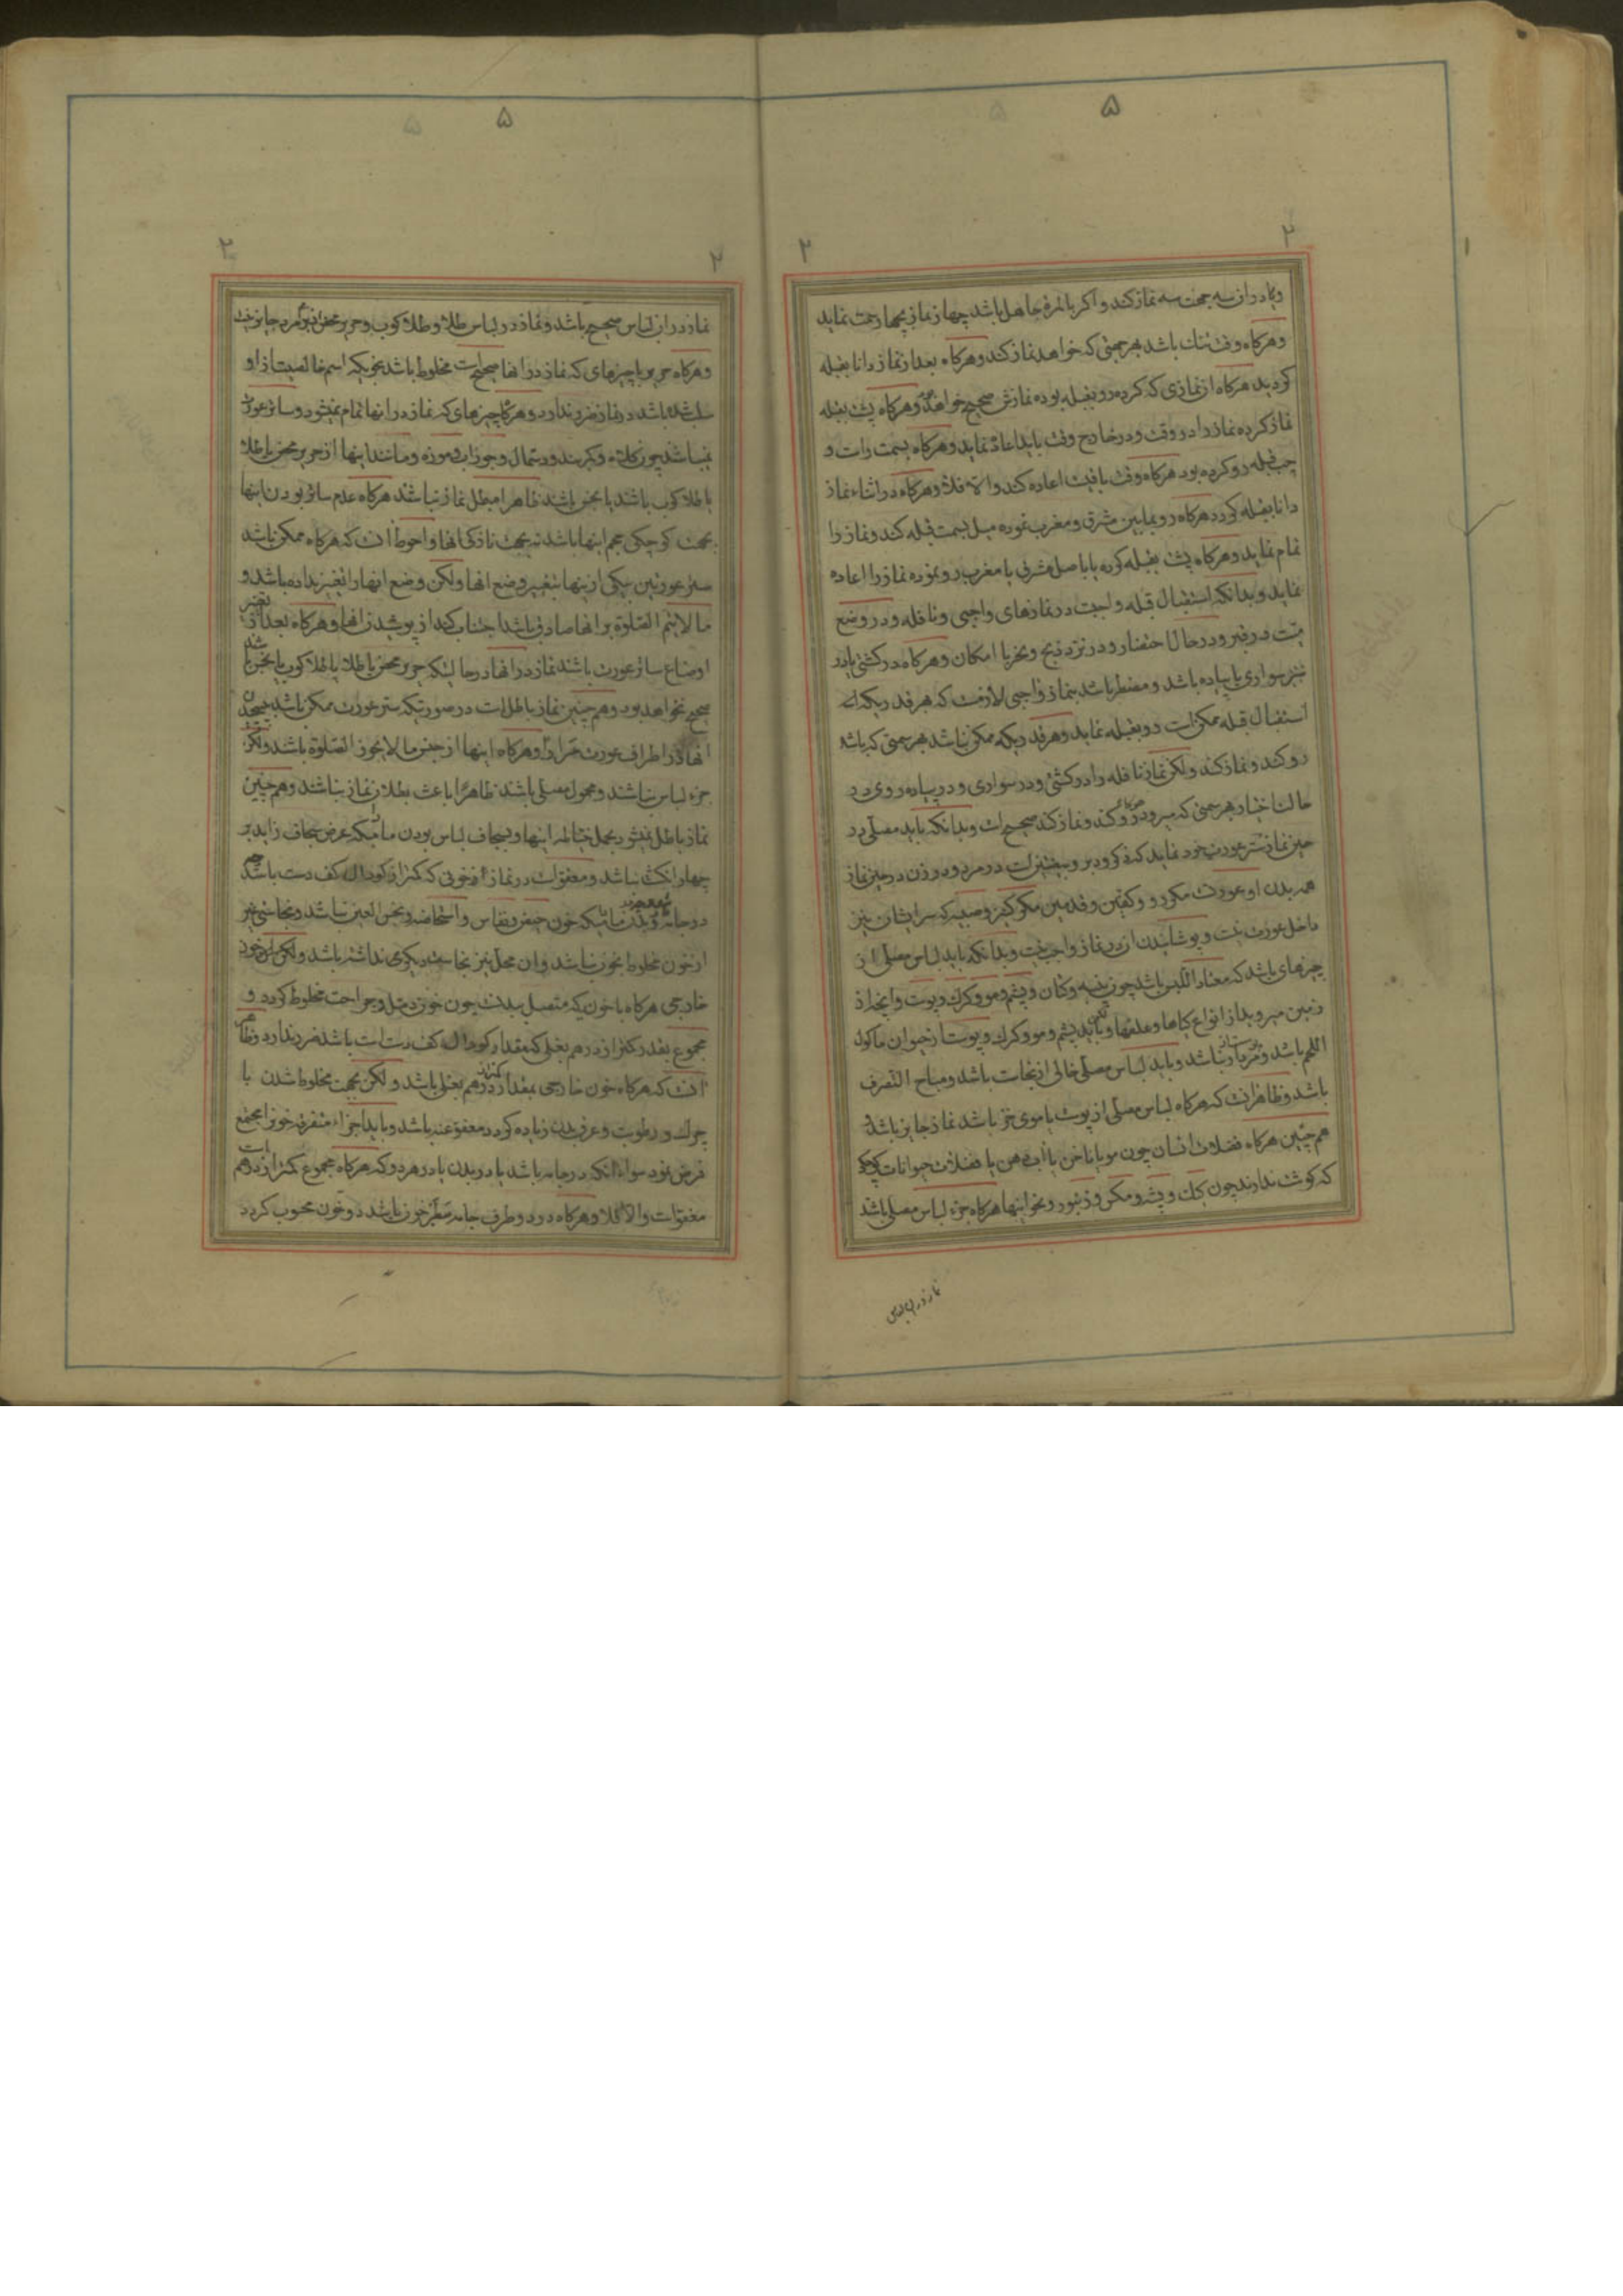 ۵
۲ ۲
و یا در ان سه جهت سه نماز کند و اکر بالمره جاهل باشد چهار نماز بچهار جهت نماید
و هرکاه وقت تنک باشد بهر جهتی که خواهد نماز کند و هرکاه بعد از نماز دانا بقبله
کردید هرکاه از نمازی که کرده رو بقبله بوده نمازش صحیح خواهد و هرکاه پشت بقبله
نماز کرده نماز را در وقت و در خارج وقت باید اعاده نماید و هرکاه بسمت راست و
چپ قبله رو کرده بود هرکاه وقت باقیست اعاده کند والا فلا و هرکاه در اثناء نماز
دانا بقبله کردد هرکاه رو بمابین مشرق و مغرب نموده میل بسمت قبله کند و نماز را
تمام نماید و هرکاه پشت بقبله کرده یا باصل مشرق یا مغرب رو نموده نماز را اعاده
نماید و بدانکه استقبال قبله واجبست در نمازهای واجبی و نافله و در وضع
میت در قبر و در حال احتضار و در نزد ذبح و نحر با امکان و هرکاه در کشتی یا در
سواری یا پیاده باشد و مضطر باشد بنماز واجبی لازمست که هر قدریکه از
استقبال قبله ممکن است رو بقبله نماید و هر قدریکه ممکن نباشد بهر سمتی که باشد
رو کند و نماز کند ولکن نماز نافله را در کشتی و در سواری و در پیاده روی در
حالت اختیار بهر سمتی که میرود رو کند و نماز کند صحیح است و بدانکه باید مصلی در
حین نماز ستر عورت خود نماید که ذکر و دبر و بیضتین است در مرد و در زن در حین نماز
همه بدن او عورت مکر رو و کفین و قدمین مکر کنیز و صبیه که سر ایشان نیز
داخل عورت نیست و پوشانیدن ان در نماز واجب نیست و بدانکه باید لباس مصلی از
چیزهای باشد که معتاد اللبس باشد چون پنبه و کتان و پشم و مو و کرک و پوست و انچه از
زمین میروید از انواع کیاها و علفها و باید پشم و مو و کرک و پوست از حیوان ماکول
اللحم باشد و نباشد و باید لباس مصلی خالی از نجاست باشد و مباح التصرف
باشد و ظاهر انست که هرکاه لباس مصلی از پوست یا موی خز باشد نماز جایز باشد و
هم چنین هرکاه فضلات انسان چون مو یا ناخن یا اب دهن یا فضلات حیوانات کوچک
که کوشت ندارند چون کک و پشه و مکس و زنبور و نحو اینها هرکاه جزء لباس مصلی باشد
نماز در ان لباس
۵
۲ ۲
نماز در ان لباس صحیح باشد و نماز در لباس طلا و طلا کوب و حریر محض از برای مرد جایز نیست
و هرکاه حریر با چیزهای که نماز در انها صحیح است مخلوط باشد بنحویکه اسم خالصیت از او
سلب شده باشد در نماز ضرر ندارد و هرکاه چیزهای که نماز در انها تمام نمیشود و ساتر عورت
نمیباشد چون کلاه و کمربند و دستمال و جوراب و موزه و مانند اینها از حریر محض یا طلا
یا طلا کوب باشند یا نجس باشند ظاهرا مبطل نماز نباشد هرکاه عدم ساتر بودن اینها
بجهت کوچکی حجم اینها باشد نه بجهت نازکی انها و احوط انست که هرکاه ممکن باشد
ستر عورتین بیکی از اینها بتغییر وضع انها ولکن وضع انها را تغییر نداده باشد و
ما لا یتم الصلوة بر انها صادق باشد اجتناب کند از پوشیدن انها و هرکاه بعد از تغییر
اوضاع ساتر عورت باشند نماز در انها در حالتیکه حریر محض یا طلا یا طلا کوب یا نجس باشند
صحیح نخواهد بود و هم چنین نماز باطل است در صورتیکه ستر عورت ممکن باشد
انها در اطراف عورت و هرکاه اینها از جنس ما لا یجوز الصلوة باشد ولکن
جزء لباس نباشند و محمول مصلی باشند ظاهرا باعث بطلان نماز نباشند و هم چنین
نماز باطل نمیشود بحمل اینها و بسجاف لباس بودن مادامیکه عرض سجاف زاید بر
چهار انکشت نباشد و معفو است در نماز از خونی که کمتر از کودال کف دست باشد
در جامه و بدن مادامیکه خون حیض و نفاس و استحاضه و نجس العین نباشد و نجاستی غیر
از خون مخلوط بخون نباشد و ان محل نیز نجاست دیکری نداشته باشد ولکن خون
خارجی هرکاه با خونیکه متصل ببدنست چون خون دمل و جراحت مخلوط کردد و
مجموع بقدر کمتر از درهم بغلی که مقدار کودال کف دست است باشد ضرر ندارد و ظاهر
انست که هرکاه خون خارجی بمقدار کمتر از درهم بغلی باشد ولکن بجهت مخلوط شدن با
چرک و رطوبت و عرق بدن زیاده کردد معفو عنه باشد و باید اجزاء متفرقه خون را مجتمع
فرض نمود سواء انکه در جامه باشد یا در بدن یا در هر دو که هرکاه مجموع کمتر از درهم است
معفو است والا فلا و هرکاه در دو طرف جامه خون باشد دو خون محسوب کردد